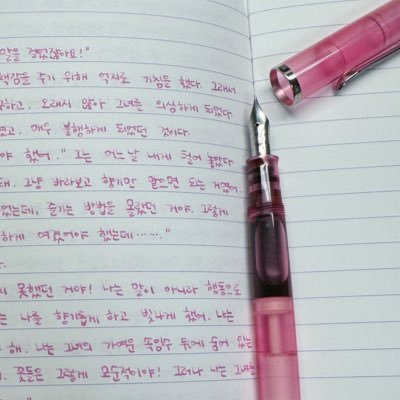 말을 걸었잖아요!"
책감을 주기 위해 억지로 기침을 했다. 그래서
하고. 오래지 않아 그녀를 의심하게 되었다.
였고. 매우 불행하게 되었던 것이다.
야 했어." 그는 어느날 내게 털어 놓았다.
돼. 그냥 바라보고 향기만 맡으면 되는 거였어.
었는데, 즐기는 방법을 몰랐던 거야. 그렇게
하게 여겼어야 했는데……."
지 못했던 거야! 나는 말이 아니라 행동으로
는 나를 향기롭게 하고 빛나게 했어. 나는
야 해. 나는 그녀의 가여운 속임수 뒤에 숨어 있는
. 꽃들은 그렇게 모순적이야! 그러나 나는 그녀를